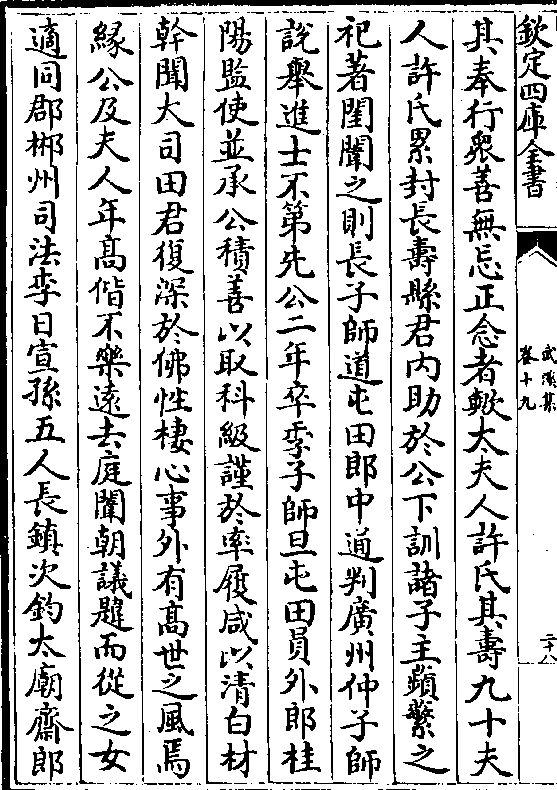 欽定四庫全書
武溪集
卷十九
二十八
其奉行衆善無忘正念者歟太夫人許氏其壽九十夫
人許氏累封長壽縣君内助於公下訓諸子主蘋蘩之
祀著閨閫之則長子師道屯田郎中通判廣州仲子師
說舉進士不第先公二年卒季子師旦屯田員外郎桂
陽監使並承公積善以取科級謹於率履咸以清白材
幹聞大司田君復深於佛性棲心事外有髙世之風焉
緣公及夫人年髙偕不樂遠去庭闈朝議韙而從之女
適同郡郴州司法李日宣孫五人長鎮次鈞太廟齋郎